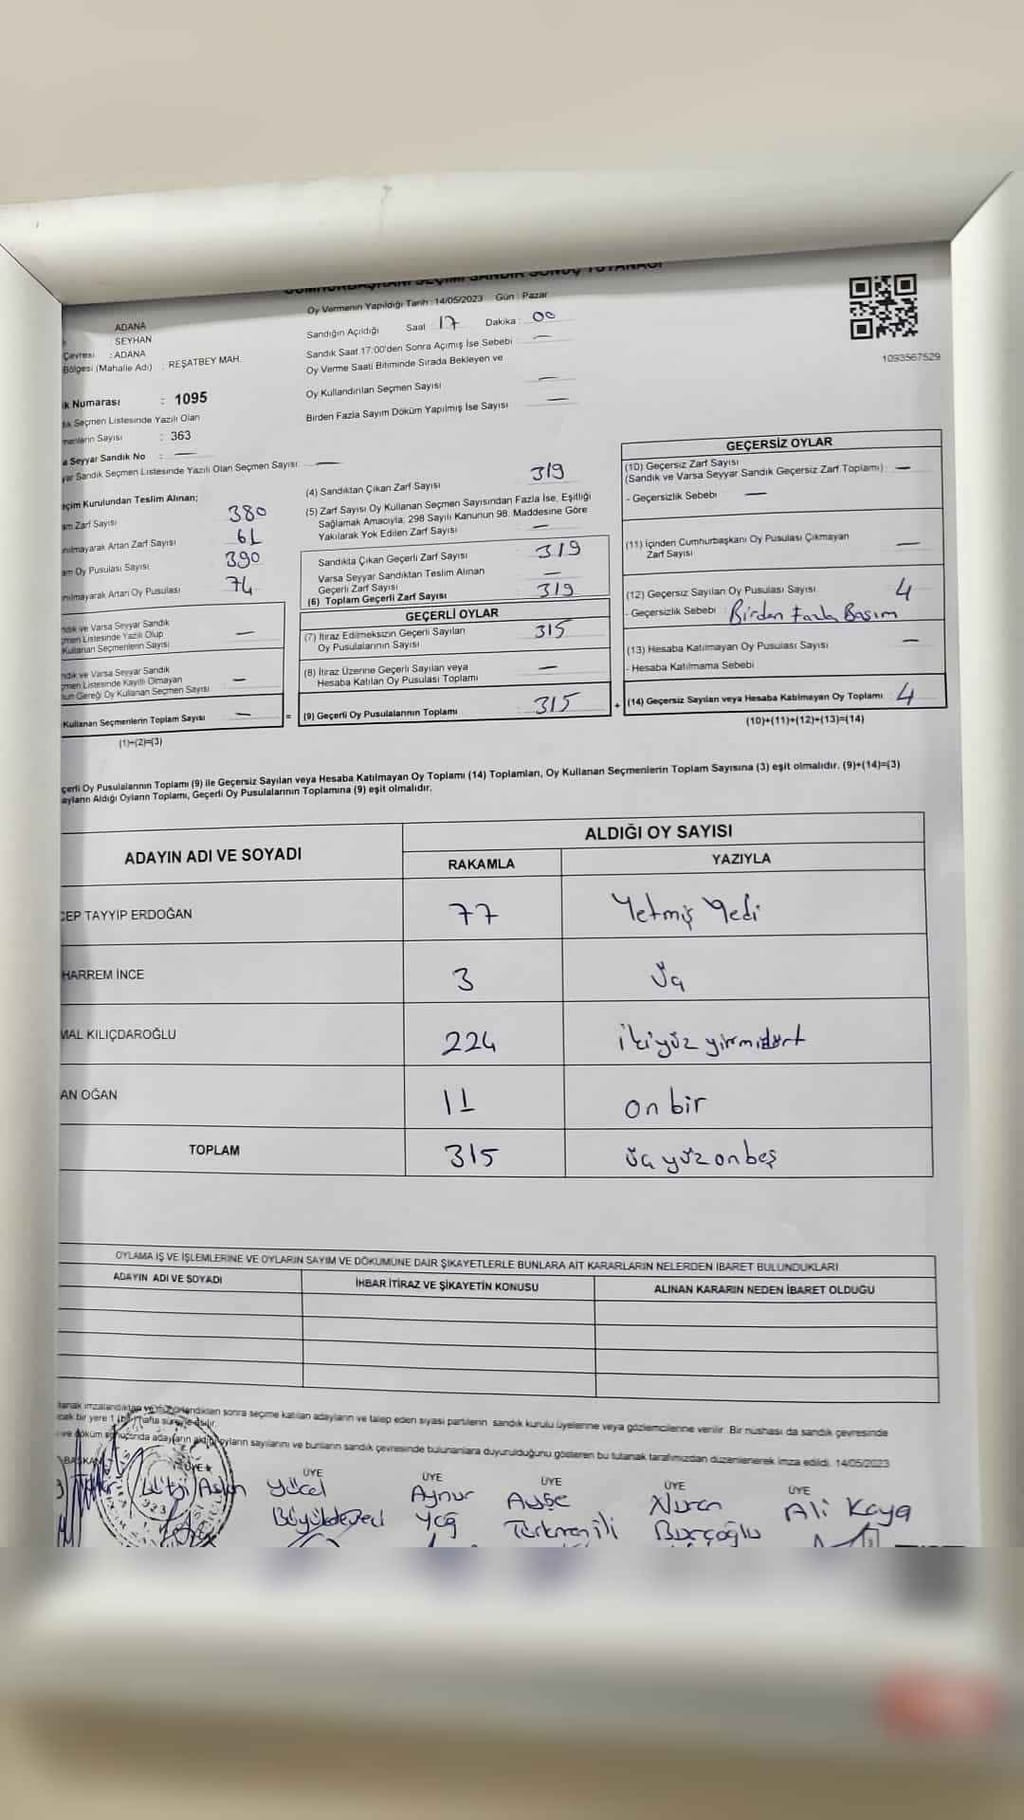 CUMHURBAŞKANI SEÇİMİ SANDIK SONUÇ TUTANAĞI
Oy Vermenin Yapıldığı Tarih : 14/05/2023 Gün : Pazar
ADANA
SEYHAN
Çevresi : ADANA
Bölgesi (Mahalle Adı) : REŞATBEY MAH.
Sandığın Açıldığı Saat 17 Dakika : 00
Sandık Saat 17:00'den Sonra Açılmış İse Sebebi —
Oy Verme Saati Bitiminde Sırada Bekleyen ve
Oy Kullandırılan Seçmen Sayısı —
Birden Fazla Sayım Döküm Yapılmış İse Sayısı —
1093567529
k Numarası : 1095
Seçmen Listesinde Yazılı Olan
menlerin Sayısı : 363
a Seyyar Sandık No : —
yar Sandık Seçmen Listesinde Yazılı Olan Seçmen Sayısı —
eçim Kurulundan Teslim Alınan;
am Zarf Sayısı 380
nılmayarak Artan Zarf Sayısı 61
am Oy Pusulası Sayısı 390
nılmayarak Artan Oy Pusulası 74
ndık ve Varsa Seyyar Sandık
çmen Listesinde Yazılı Olup
Kullanan Seçmenlerin Sayısı —
ndık ve Varsa Seyyar Sandık
çmen Listesinde Kayıtlı Olmayan
un Gereği Oy Kullanan Seçmen Sayısı —
Kullanan Seçmenlerin Toplam Sayısı —
(1)+(2)=(3)
(4) Sandıktan Çıkan Zarf Sayısı 319
(5) Zarf Sayısı Oy Kullanan Seçmen Sayısından Fazla İse, Eşitliği
Sağlamak Amacıyla, 298 Sayılı Kanunun 98. Maddesine Göre
Yakılarak Yok Edilen Zarf Sayısı —
Sandıkta Çıkan Geçerli Zarf Sayısı 319
Varsa Seyyar Sandıktan Teslim Alınan
Geçerli Zarf Sayısı —
(6) Toplam Geçerli Zarf Sayısı 319
GEÇERLİ OYLAR
(7) İtiraz Edilmeksizin Geçerli Sayılan
Oy Pusulalarının Sayısı 315
(8) İtiraz Üzerine Geçerli Sayılan veya
Hesaba Katılan Oy Pusulası Toplamı —
= (9) Geçerli Oy Pusulalarının Toplamı 315
GEÇERSİZ OYLAR
(10) Geçersiz Zarf Sayısı
(Sandık ve Varsa Seyyar Sandık Geçersiz Zarf Toplamı) —
- Geçersizlik Sebebi —
(11) İçinden Cumhurbaşkanı Oy Pusulası Çıkmayan
Zarf Sayısı —
(12) Geçersiz Sayılan Oy Pusulası Sayısı 4
- Geçersizlik Sebebi : Birden Fazla Basım
(13) Hesaba Katılmayan Oy Pusulası Sayısı —
- Hesaba Katılmama Sebebi
+ (14) Geçersiz Sayılan veya Hesaba Katılmayan Oy Toplamı 4
(10)+(11)+(12)+(13)=(14)
çerli Oy Pusulalarının Toplamı (9) ile Geçersiz Sayılan veya Hesaba Katılmayan Oy Toplamı (14) Toplamları, Oy Kullanan Seçmenlerin Toplam Sayısına (3) eşit olmalıdır. (9)+(14)=(3)
ayların Aldığı Oyların Toplamı, Geçerli Oy Pusulalarının Toplamına (9) eşit olmalıdır.
ADAYIN ADI VE SOYADI ALDIĞI OY SAYISI
RAKAMLA YAZIYLA
CEP TAYYİP ERDOĞAN 77 Yetmiş Yedi
HARREM İNCE 3 üç
MAL KILIÇDAROĞLU 224 ikiyüz yirmidört
AN OĞAN 11 on bir
TOPLAM 315 üç yüz onbeş
OYLAMA İŞ VE İŞLEMLERİNE VE OYLARIN SAYIM VE DÖKÜMÜNE DAİR ŞİKAYETLERLE BUNLARA AİT KARARLARIN NELERDEN İBARET BULUNDUKLARI
ADAYIN ADI VE SOYADI İHBAR İTİRAZ VE ŞİKAYETİN KONUSU ALINAN KARARIN NEDEN İBARET OLDUĞU
tanak imzalandıktan ve mühürlendikten sonra seçime katılan adayların ve talep eden siyasi partilerin sandık kurulu üyelerine veya gözlemcilerine verilir. Bir nüshası da sandık çevresinde
cek bir yere 1 (bir) hafta süreyle asılır.
ve döküm sonucunda adayların aldığı oyların sayılarını ve bunların sandık çevresinde bulunanlara duyurulduğunu gösteren bu tutanak tarafımızdan düzenlenerek imza edildi. 14/05/2023
BAŞKAN ÜYE ÜYE ÜYE ÜYE ÜYE ÜYE
Lütfi Aslan Yücel Aynur Ayşe Nuran Ali Kaya
Yağ Türkmenili Burçoğlu